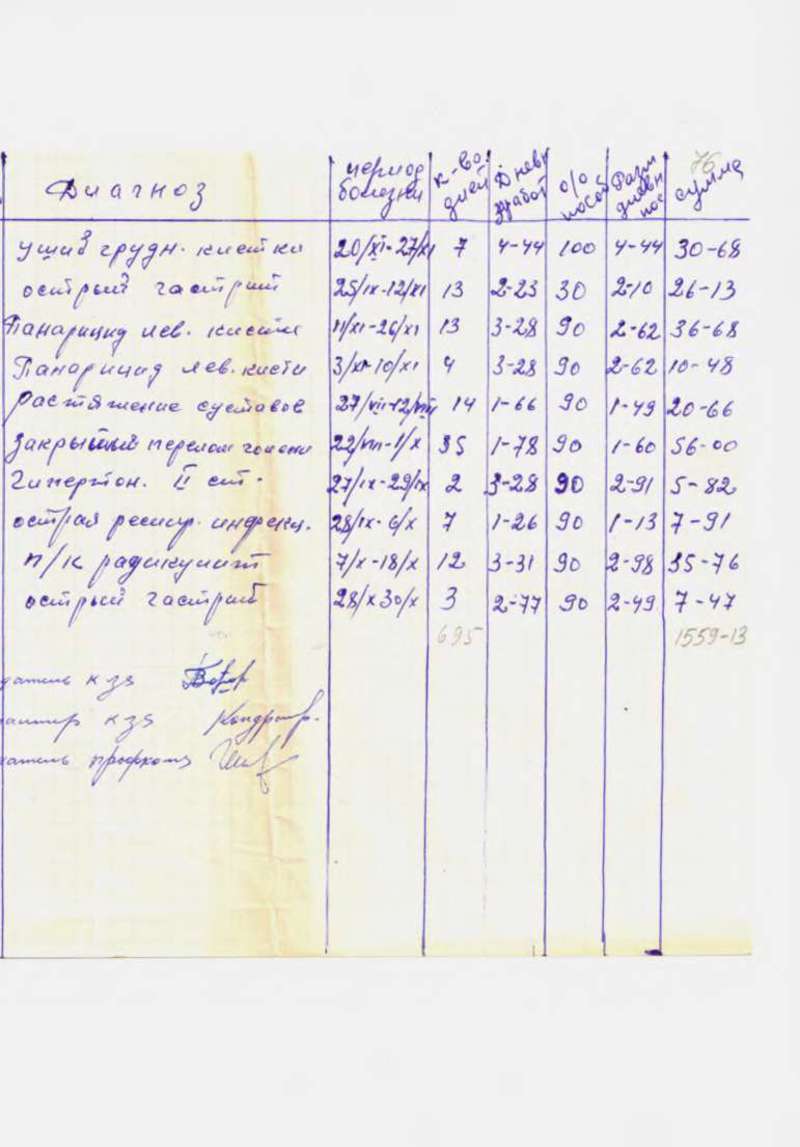 76
Диагноз период болезни к-во дней Дневн зработ о/о пособ Разм дневн пос сумма
ушиб грудн. клетки 20/XI-27/XI 7 4-44 100 4-44 30-68
острый гастрит 25/IX-12/XI 13 2-23 30 2-10 26-13
Панарицид лев. кисти 11/XI-26/XI 13 3-28 90 2-62 36-68
Панарицид лев. кисти 3/XI-10/XI 4 3-28 90 2-62 10-48
растяжение суставов 27/VII-12/VIII 14 1-66 90 1-49 20-66
закрытый перелом голени 22/VIII-1/X 35 1-78 90 1-60 56-00
Гипертон. II ст. 27/IX-29/IX 2 3-28 90 2-91 5-82
острая респир. инфекц. 28/IX-6/X 7 1-26 90 1-13 7-91
п/к радикулит 7/X-18/X 12 3-31 90 2-98 35-76
острый гастрит 28/X 30/X 3 2-77 90 2-49 7-47
695 1559-13
датель кзя
кзя Кондрат.
датель профкома